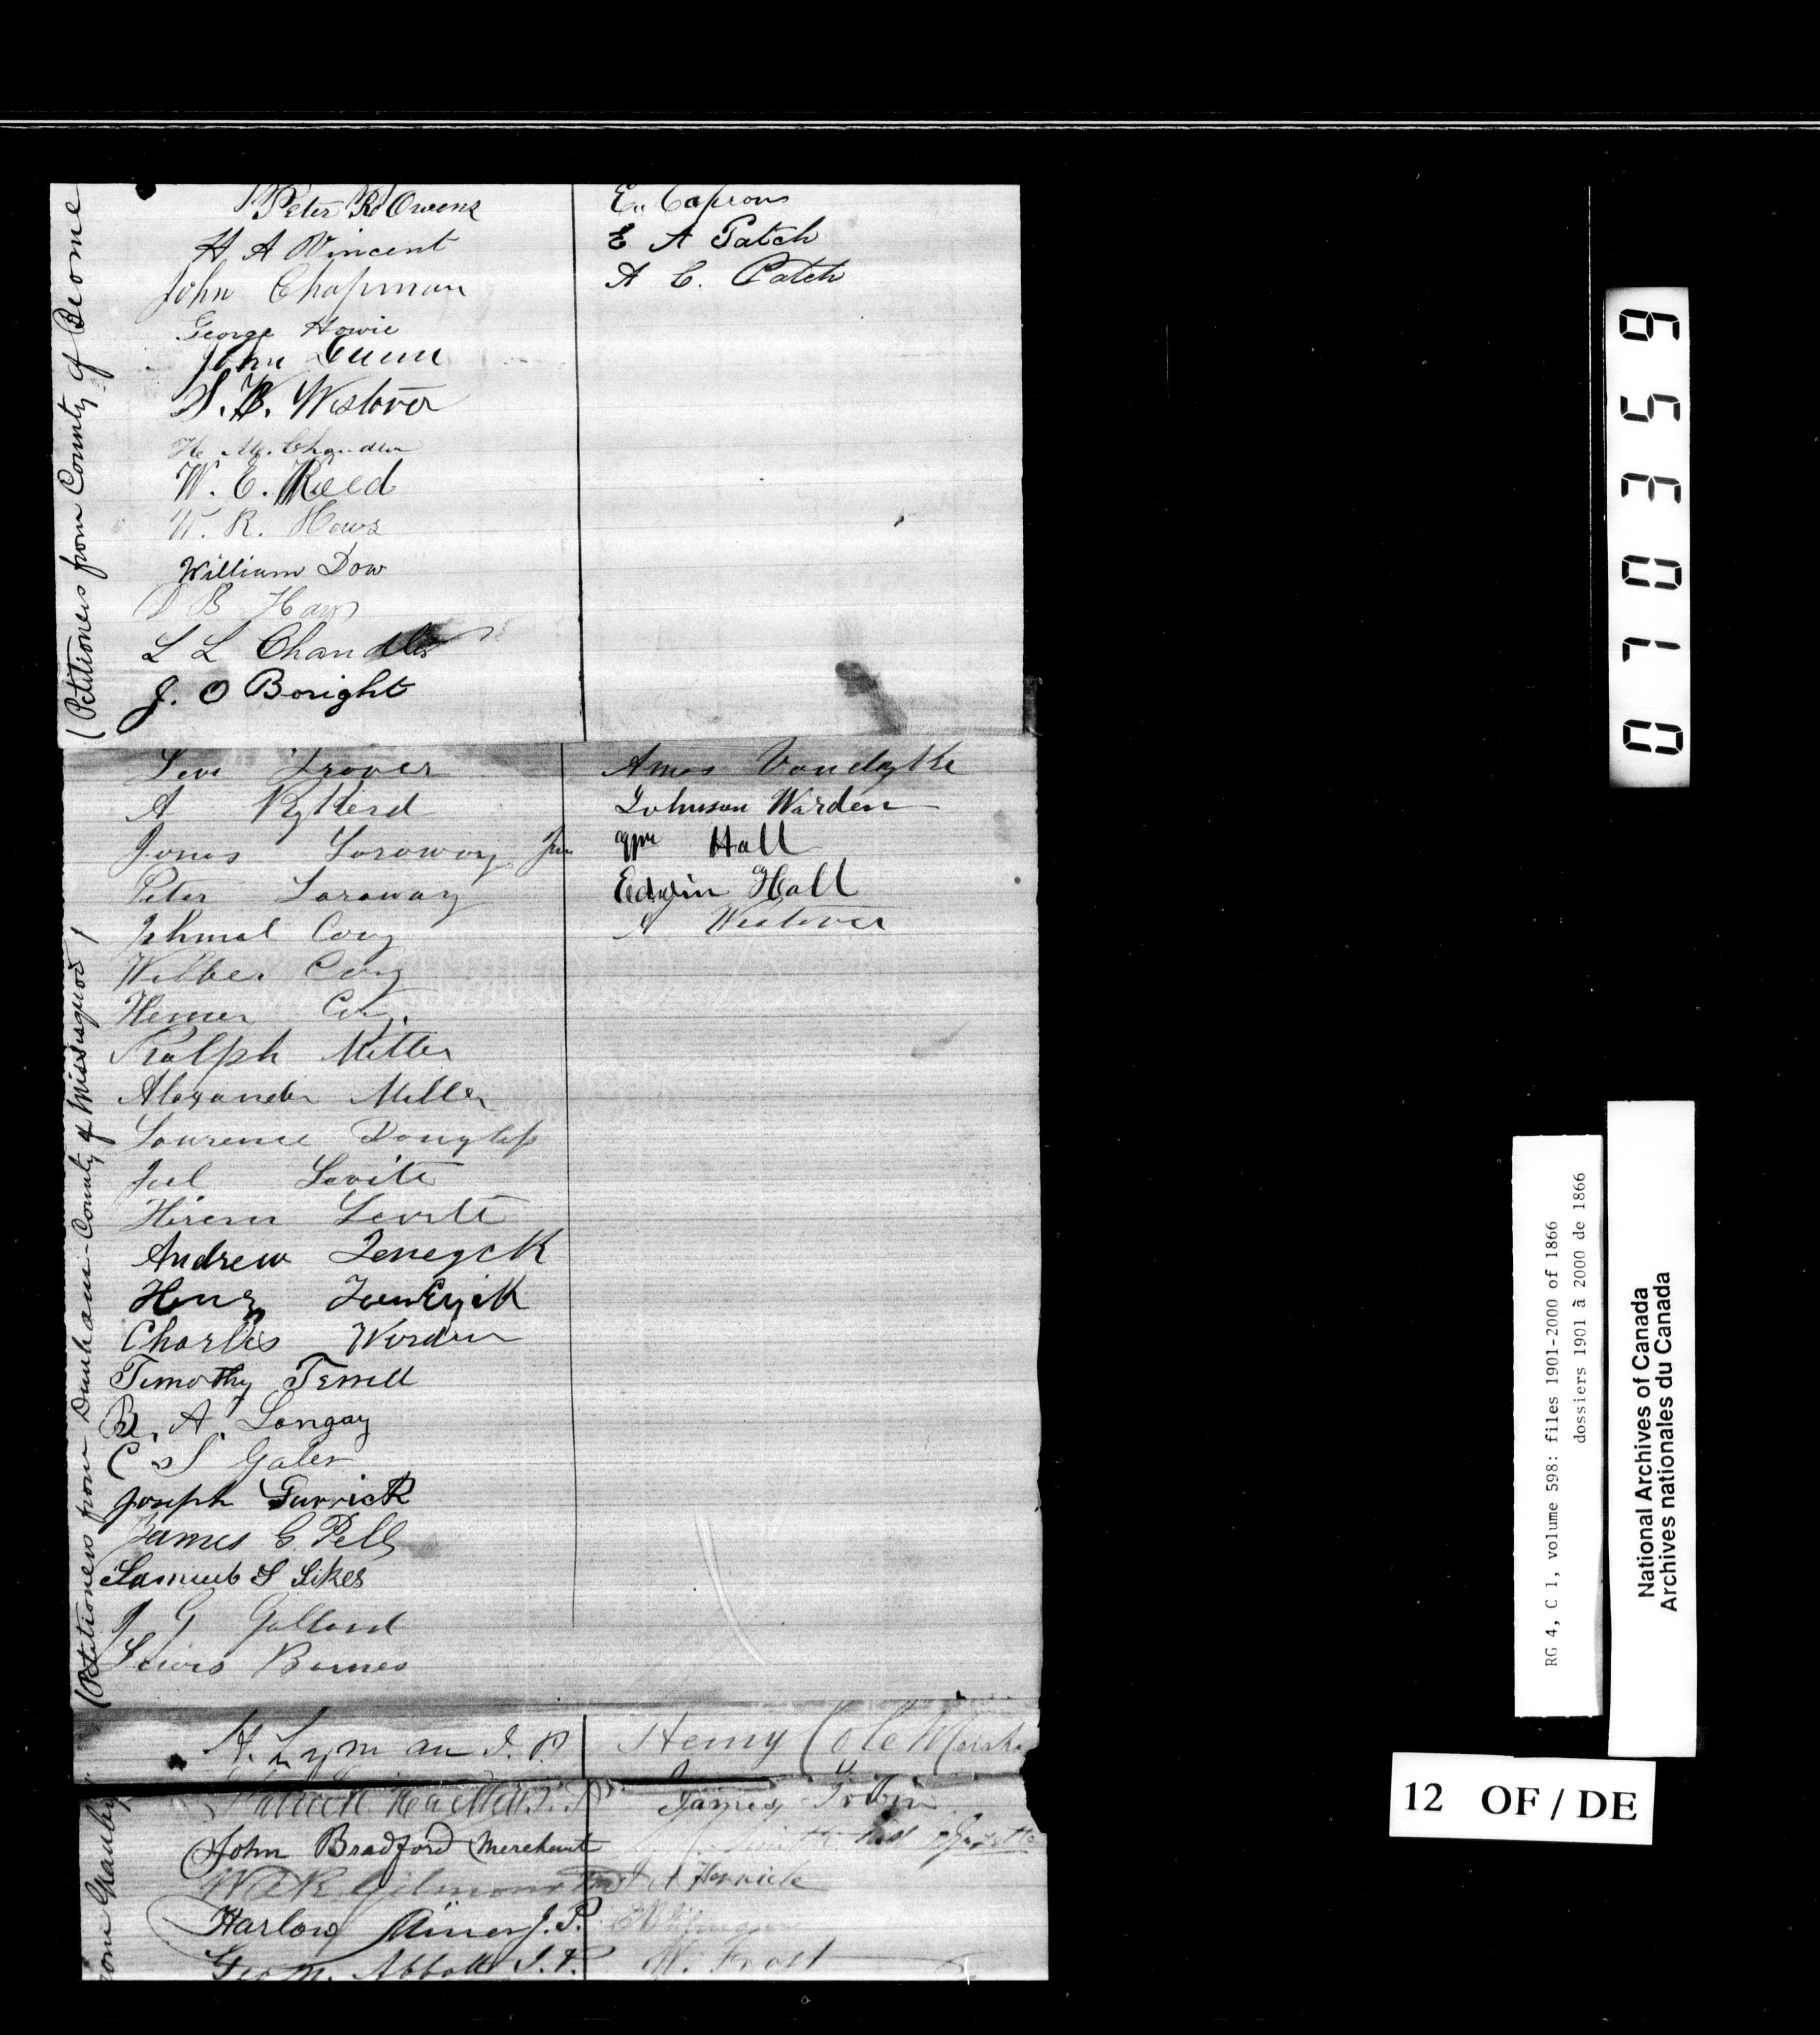 (Petitioners from County of Brome
Peter R Owens
H A Vincent
John Chapman
George Howie
John
S. W. Westover
H. M. Chandler
W. E. Reed
W. R. Haws
William Dow
D B
L L Chandler
J. O Boright
E. Caprons
E A Patch
A C. Patch
(Petitioners from Dunham - County of Missisquoi)
Levi
A
Jonas Laraway Jun
Peter Laraway
Cory
Wilber Cory
Homer Cory.
Ralph Miller
Alexander Miller
Lawrence Douglass
Joel Levite
Hiram Levite
Andrew Teneyck
Henry TenEyck
Charles Worden
Timothy Terrell
B. A. Longay
C S Galer
Joseph
James C. Pell
Samuel S Sikes
J G
Lewis Barnes
Amos Vandyke
Johnson Warden
Hall
Edwin Hall
A Westover
from Granby
H. Lyman J. P
J. P
John Bradford Merchant
W R Gilmour
Harlow Miner J. P.
Geo M. Abbott J. P.
Henry Cole
James Tobin
Gazette
Herrick
W. Frost
070359
RG 4, C 1, volume 598: files 1901-2000 of 1866
dossiers 1901 à 2000 de 1866
National Archives of Canada
Archives nationales du Canada
12 OF / DE